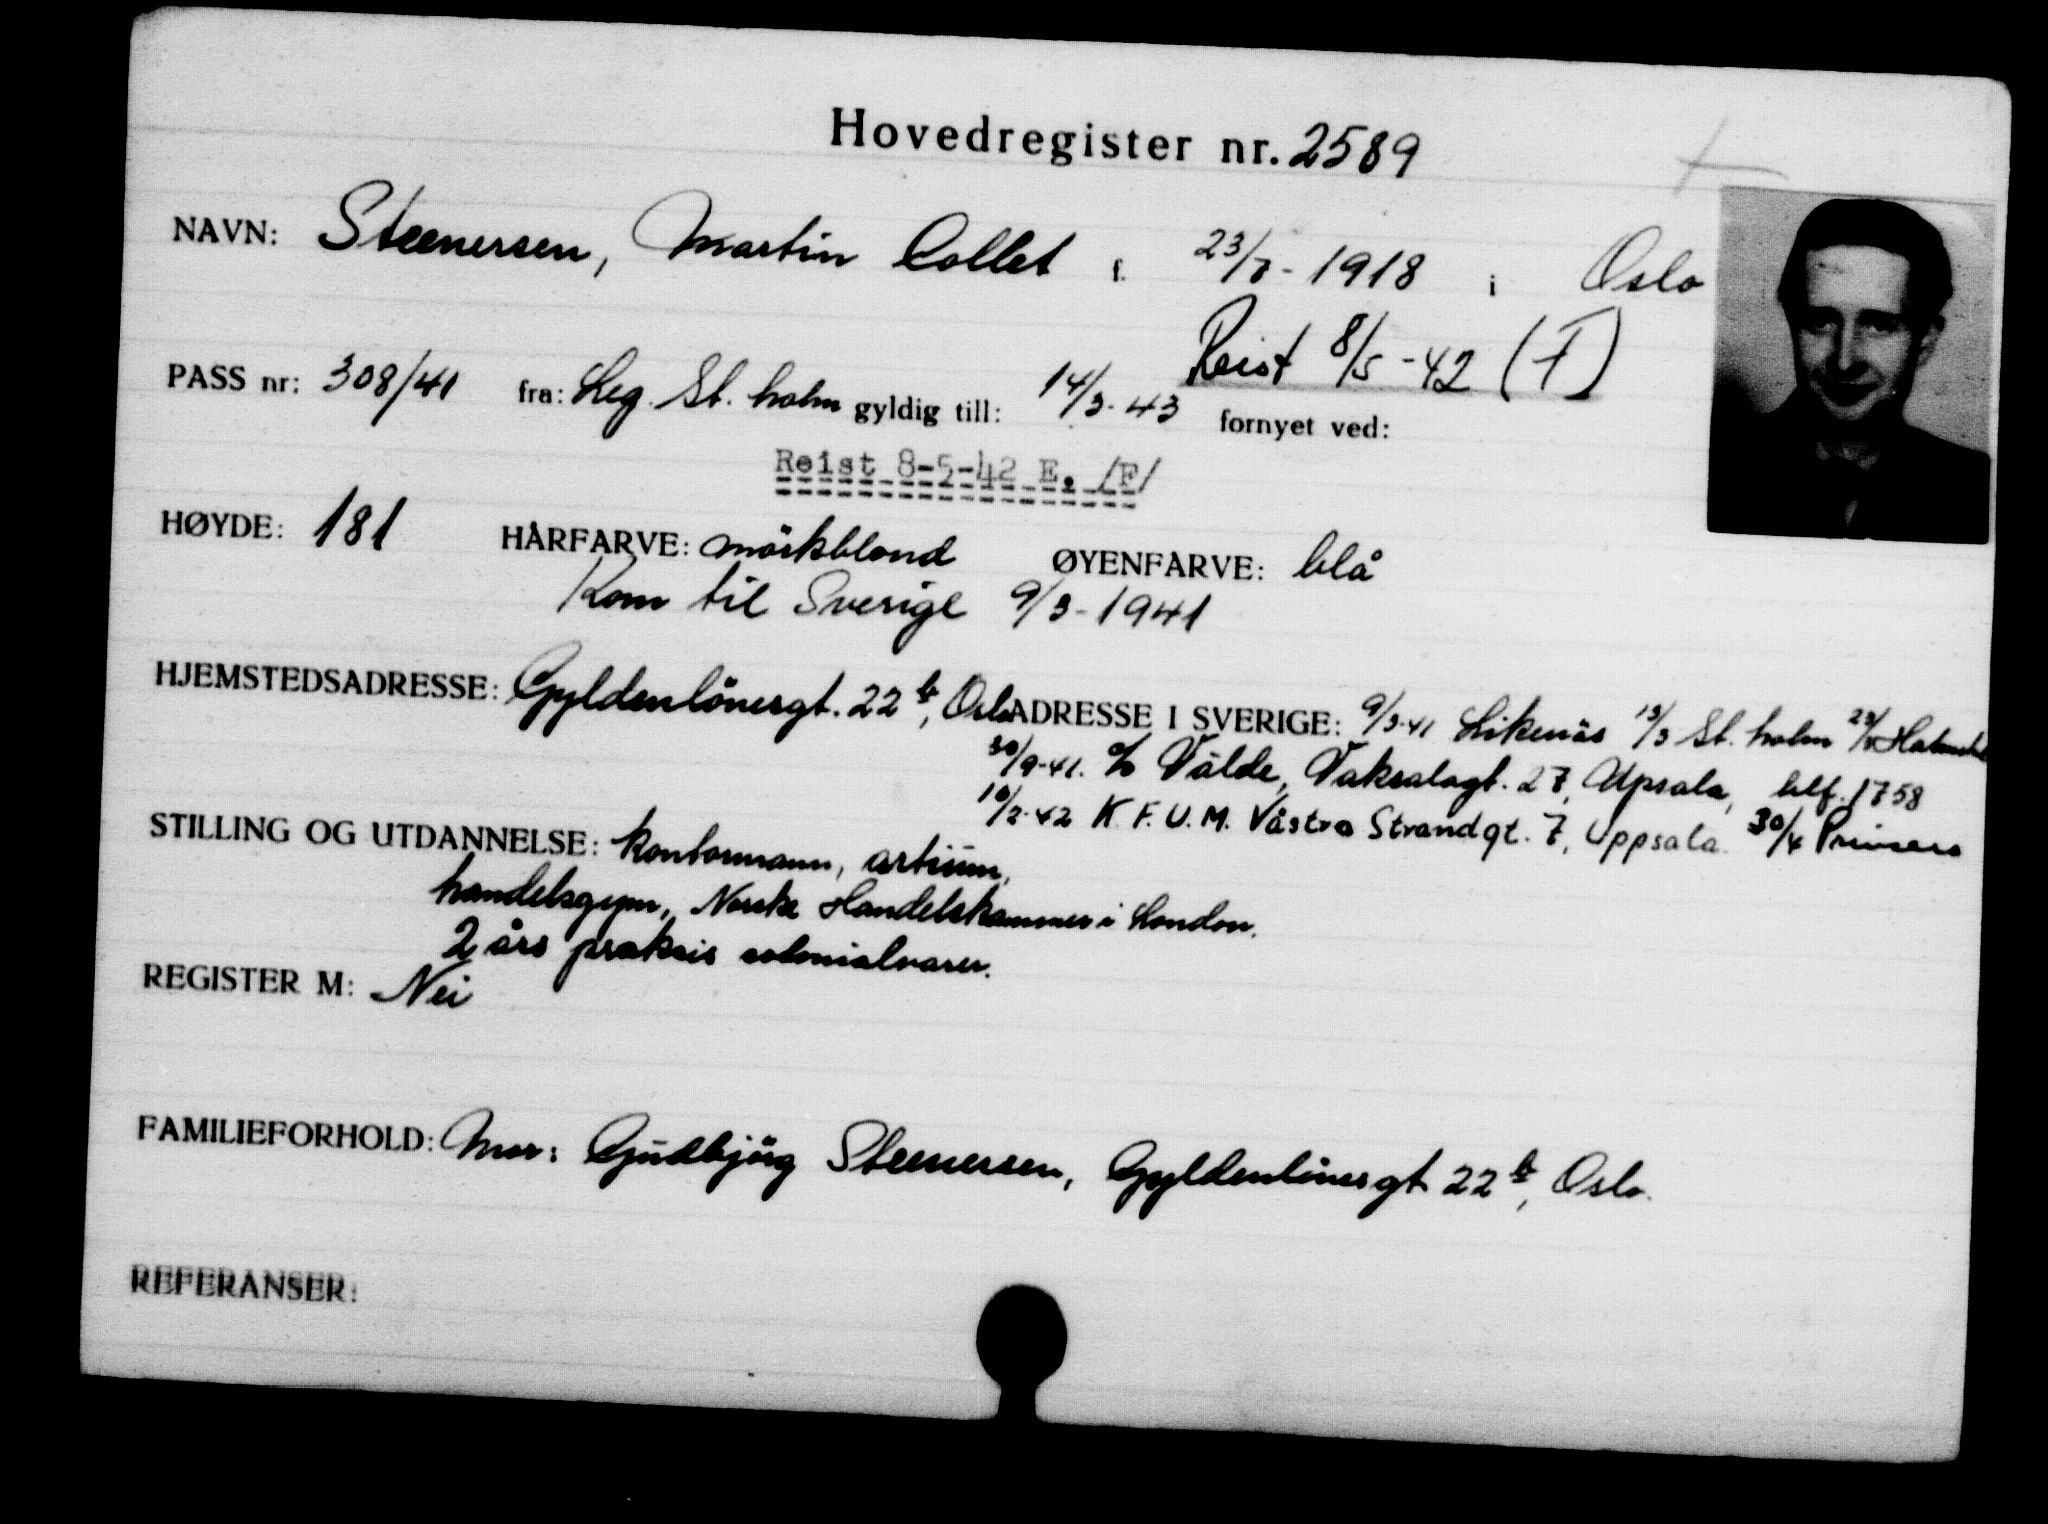 Hovedregister nr. 2589
NAVN: Steenersen, Martin Collet f. 23/7-1918 i Oslo
Reist 8/5-42 (F)
PASS nr: 308/41 fra: Leg. St. holm gyldig till: 14/3-43 fornyet ved:
Reist 8-5-42 E. /F/
HØYDE: 181 HÅRFARVE: mörkblond ØYENFARVE: blå
Kom til Sverige 9/3-1941
HJEMSTEDSADRESSE: Gyldenlövesgt. 22 b, Oslo ADRESSE I SVERIGE: 9/3-41 Likenäs 13/3 St. holm
30/9-41. c/o Välde, Vaksalagt. 27, Upsala, tlf. 1758
10/2-42 K.F.U.M. Västra Strandgt. 7, Uppsala. 30/4
STILLING OG UTDANNELSE: kontormann, artium,
handelsgym, Norske Handelskammer i London.
2 års praksis colonialvarer.
REGISTER M: Nei
FAMILIEFORHOLD: Mor: Gudbjörg Steenersen, Gyldenlövesgt 22 b, Oslo.
REFERANSER: